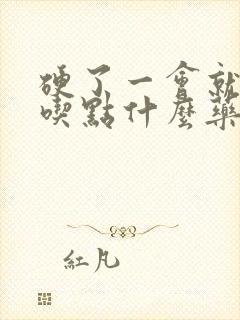 硬了一會就
喫點什麼藥
紅凡